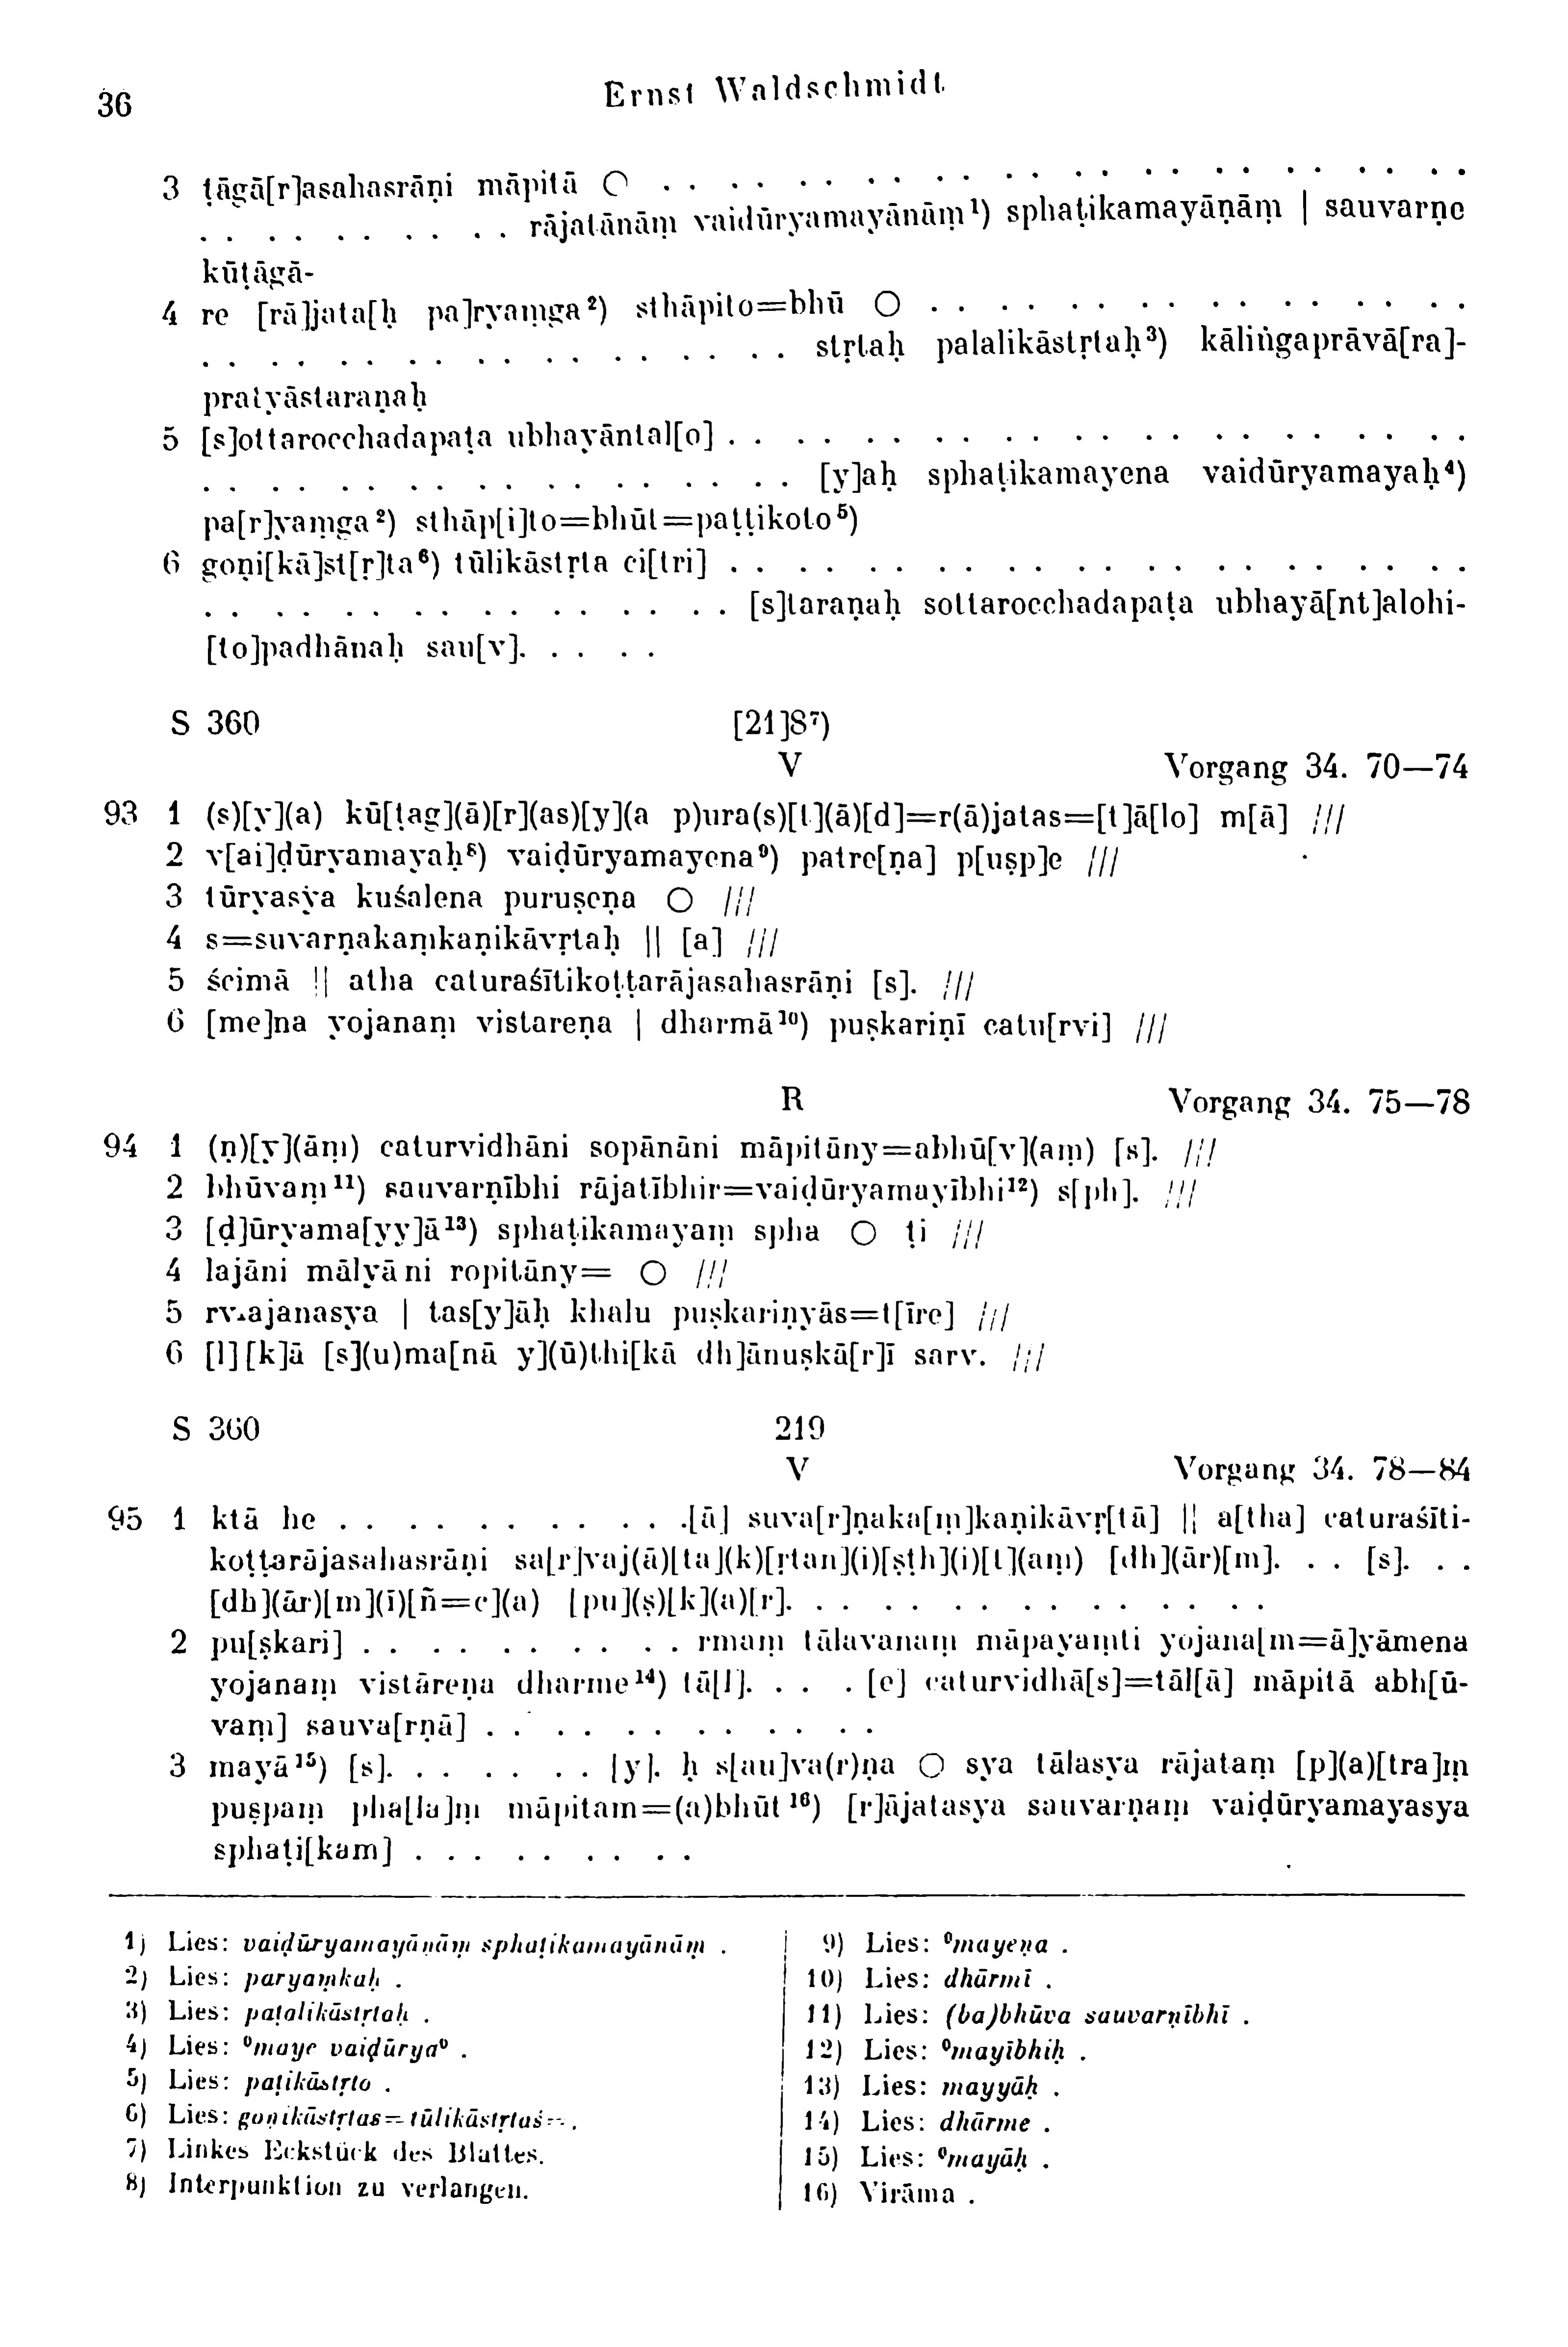 36
Ernst Waldschmidt
3 ṭāgā[r]asahasrāṇi māpitā ○ . . . . . . . . . . . . . . . . . . . . . .
. . . . . . . . . . rājatānāṃ vaidūryamayānāṃ¹) sphaṭikamayāṇāṃ | sauvarṇe
kūṭāgā-
4 re [rā]jata[ḥ pa]ryaṃga²) sthāpito=bhū ○ . . . . . . . . . . . . . . . .
. . . . . . . . . . . . . . . . . . stṛtaḥ palalikāstṛtaḥ³) kāliṅgaprāvā[ra]-
pratyāstaraṇaḥ
5 [s]ottarocchadapaṭa ubhayāntal[o] . . . . . . . . . . . . . . . . . . . . . .
. . . . . . . . . . . . . . . . . . [y]aḥ sphaṭikamayena vaidūryamayaḥ⁴)
pa[r]yaṃga²) sthāp[i]to=bhūt=paṭṭikoto⁵)
6 goṇi[kā]st[ṛ]ta⁶) tūlikāstṛta ci[tri] . . . . . . . . . . . . . . . . . . . . . .
. . . . . . . . . . . . . . . . [s]taraṇaḥ sottarocchadapaṭa ubhayā[nt]alohi-
[to]padhānaḥ sau[v]. . . . .
S 360 [21]8⁷)
V Vorgang 34. 70—74
93 1 (s)[y](a) kū[ṭag](ā)[r](as)[y](a p)ura(s)[t](ā)[d]=r(ā)jatas=[t]ā[lo] m[ā] ///
2 v[ai]ḍūryamayaḥ⁸) vaiḍūryamayena⁹) patre[ṇa] p[uṣp]e ///
3 tūryasya kuśalena puruṣeṇa ○ ///
4 s=suvarṇakaṃkaṇikāvṛtaḥ || [a] ///
5 ścimā || atha caturaśītikoṭṭarājasahasrāṇi [s]. ///
6 [me]na yojanaṃ vistareṇa | dharmā¹⁰) puṣkariṇī catu[rvi] ///
R Vorgang 34. 75—78
94 1 (ṇ)[y](āṃ) caturvidhāni sopānāni māpitāny=abhū[v](aṃ) [s]. ///
2 bhūvaṃ¹¹) sauvarṇībhi rājatībhir=vaiḍūryamayībhi¹²) s[ph]. ///
3 [ḍ]ūryama[yy]ā¹³) sphaṭikamayaṃ spha ○ ṭi ///
4 lajāni mālyāni ropitāny= ○ ///
5 rv.ajanasya | tas[y]āḥ khalu puṣkariṇyās=t[īre] ///
6 [l] [k]ā [s](u)ma[nā y](ū)thi[kā dh]ānuṣkā[r]ī sarv. ///
S 360 219
V Vorgang 34. 78—84
95 1 ktā he . . . . . . . . . . .[ā] suva[r]ṇaka[ṃ]kaṇikāvṛ[tā] || a[tha] caturaśīti-
koṭṭarājasahasrāṇi sa[r]vaj(ā)[ta](k)[ṛtan](i)[ṣṭh](i)[t](aṃ) [dh](ār)[m]. . . [s]. . .
[dh](ār)[m](ī)[ñ=c](a) [pu](ṣ)[k](a)[r]. . . . . . . . . . . . . . .
2 pu[ṣkari] . . . . . . . . . . rmaṃ tālavanaṃ māpayaṃti yojana[m=ā]yāmena
yojanaṃ vistāreṇa dharme¹⁴) tā[l]. . . . [e] caturvidhā[s]=tāl[ā] māpitā abh[ū-
vaṃ] sauva[rṇā] . . . . . . . . . . . .
3 mayā¹⁵) [s]. . . . . . . [y]. ḥ s[au]va(r)ṇa ○ sya tālasya rājataṃ [p](a)[tra]ṃ
puṣpaṃ pha[la]ṃ māpitam=(a)bhūt¹⁶) [r]ājatasya sauvarṇaṃ vaiḍūryamayasya
sphaṭi[kam] . . . . . . . . .
1) Lies: vaiḍūryamayānāṃ sphaṭikamayānāṃ .
2) Lies: paryaṃkaḥ .
3) Lies: paṭalikāstṛtaḥ .
4) Lies: ⁰maye vaiḍūrya⁰ .
5) Lies: paṭikāstṛto .
6) Lies: goṇikāstṛtas=tūlikāstṛtaś= .
7) Linkes Eckstück des Blattes.
8) Interpunktion zu verlangen.
9) Lies: ⁰mayeṇa .
10) Lies: dhārmī .
11) Lies: (ba)bhūva sauvarṇībhī .
12) Lies: ⁰mayībhiḥ .
13) Lies: mayyāḥ .
14) Lies: dhārme .
15) Lies: ⁰mayāḥ .
16) Virāma .